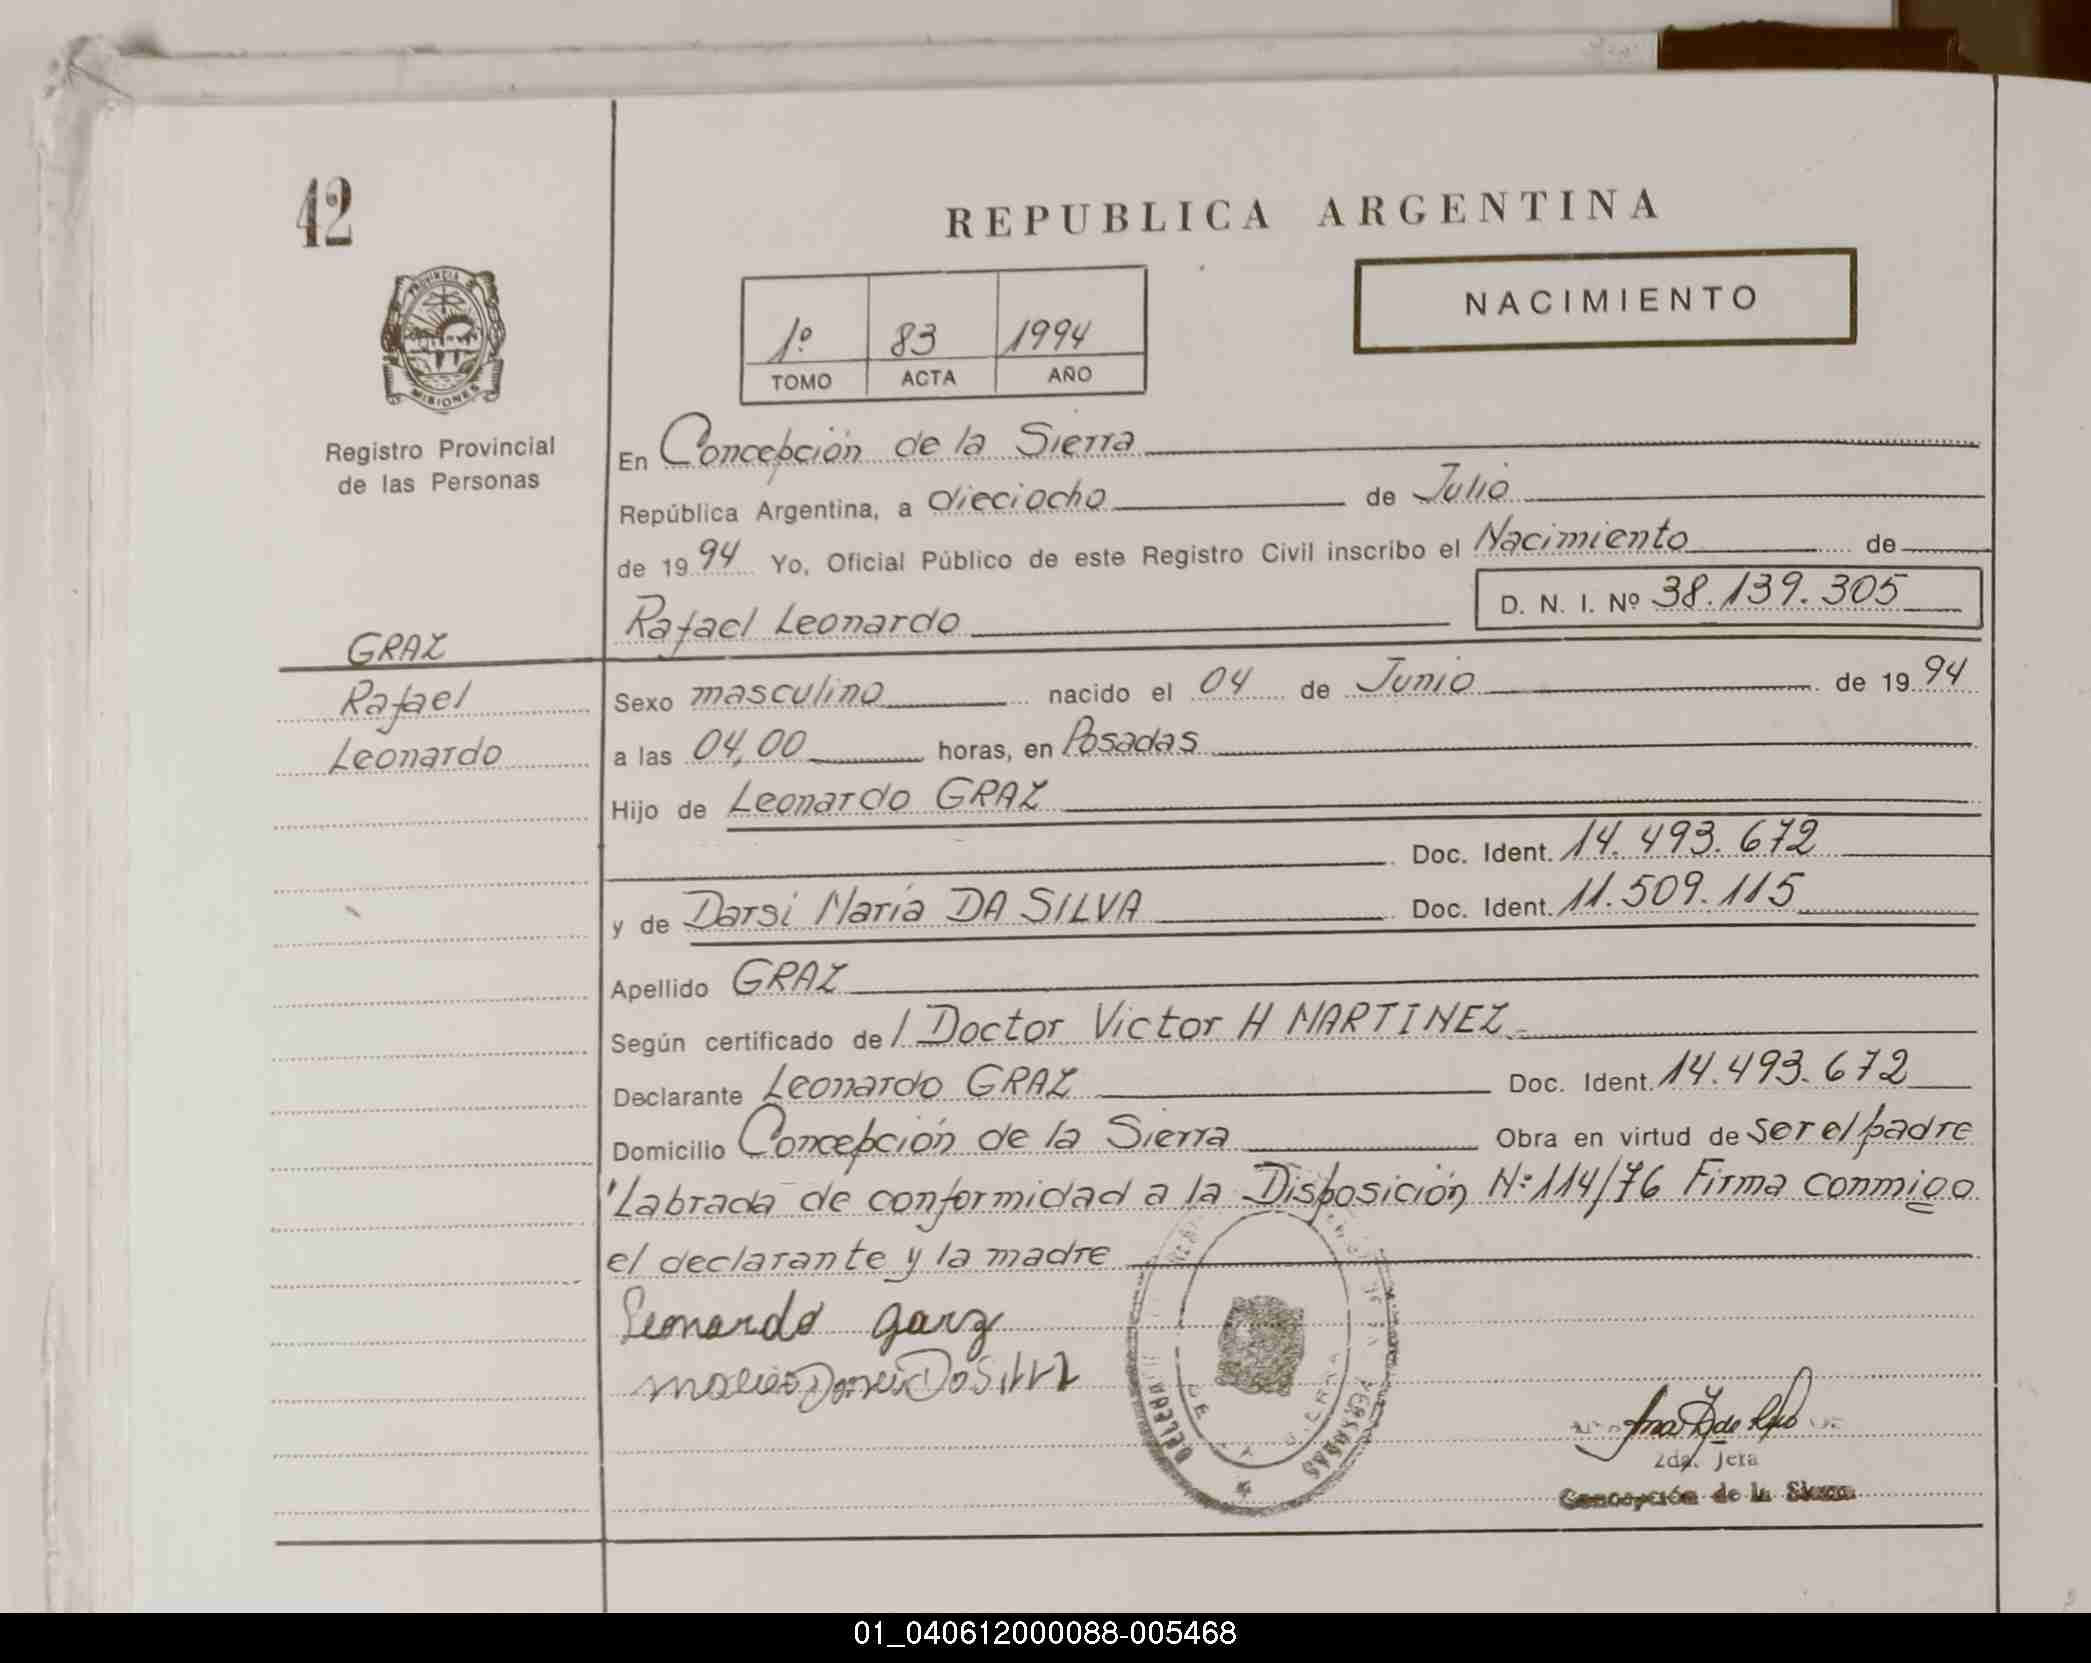 42
REPUBLICA ARGENTINA
NACIMIENTO
1º 83 1994
TOMO ACTA AÑO
PROVINCIA DE
MISIONES
Registro Provincial
de las Personas
En Concepción de la Sierra
República Argentina, a dieciocho de Julio
de 1994 Yo, Oficial Público de este Registro Civil inscribo el Nacimiento de
D. N. I. Nº 38.139.305
Rafael Leonardo
GRAZ
Rafael
Leonardo
Sexo masculino nacido el 04 de Junio de 1994
a las 04,00 horas, en Posadas
Hijo de Leonardo GRAZ
Doc. Ident. 14.493.672
y de Darsi María DA SILVA Doc. Ident. 11.509.115
Apellido GRAZ
Según certificado de l Doctor Victor H MARTINEZ
Declarante Leonardo GRAZ Doc. Ident. 14.493.672
Domicilio Concepción de la Sierra Obra en virtud de ser el padre
Labrada de conformidad a la Disposición Nº 114/76 Firma conmigo
el declarante y la madre
Leonardo garz
DE LA SIERRA
2da. Jefa
Concepción de la Sierra
01_040612000088-005468